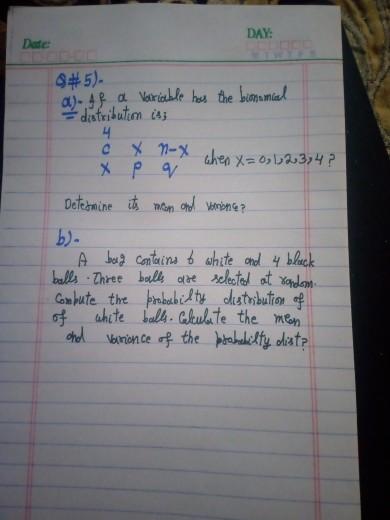 Date:
DAY:
M T W T F S
Q#5)-
a)- If a variable has the bionomial
distribution is;
4
C x n-x
x p q when x=0,1,2,3,4?
Determine its mean and variance?
b)-
A bag contains 6 white and 4 black
balls. Three balls are selected at random.
Compute the probability distribution of
of white balls. Calculate the mean
and variance of the probabilty dist?